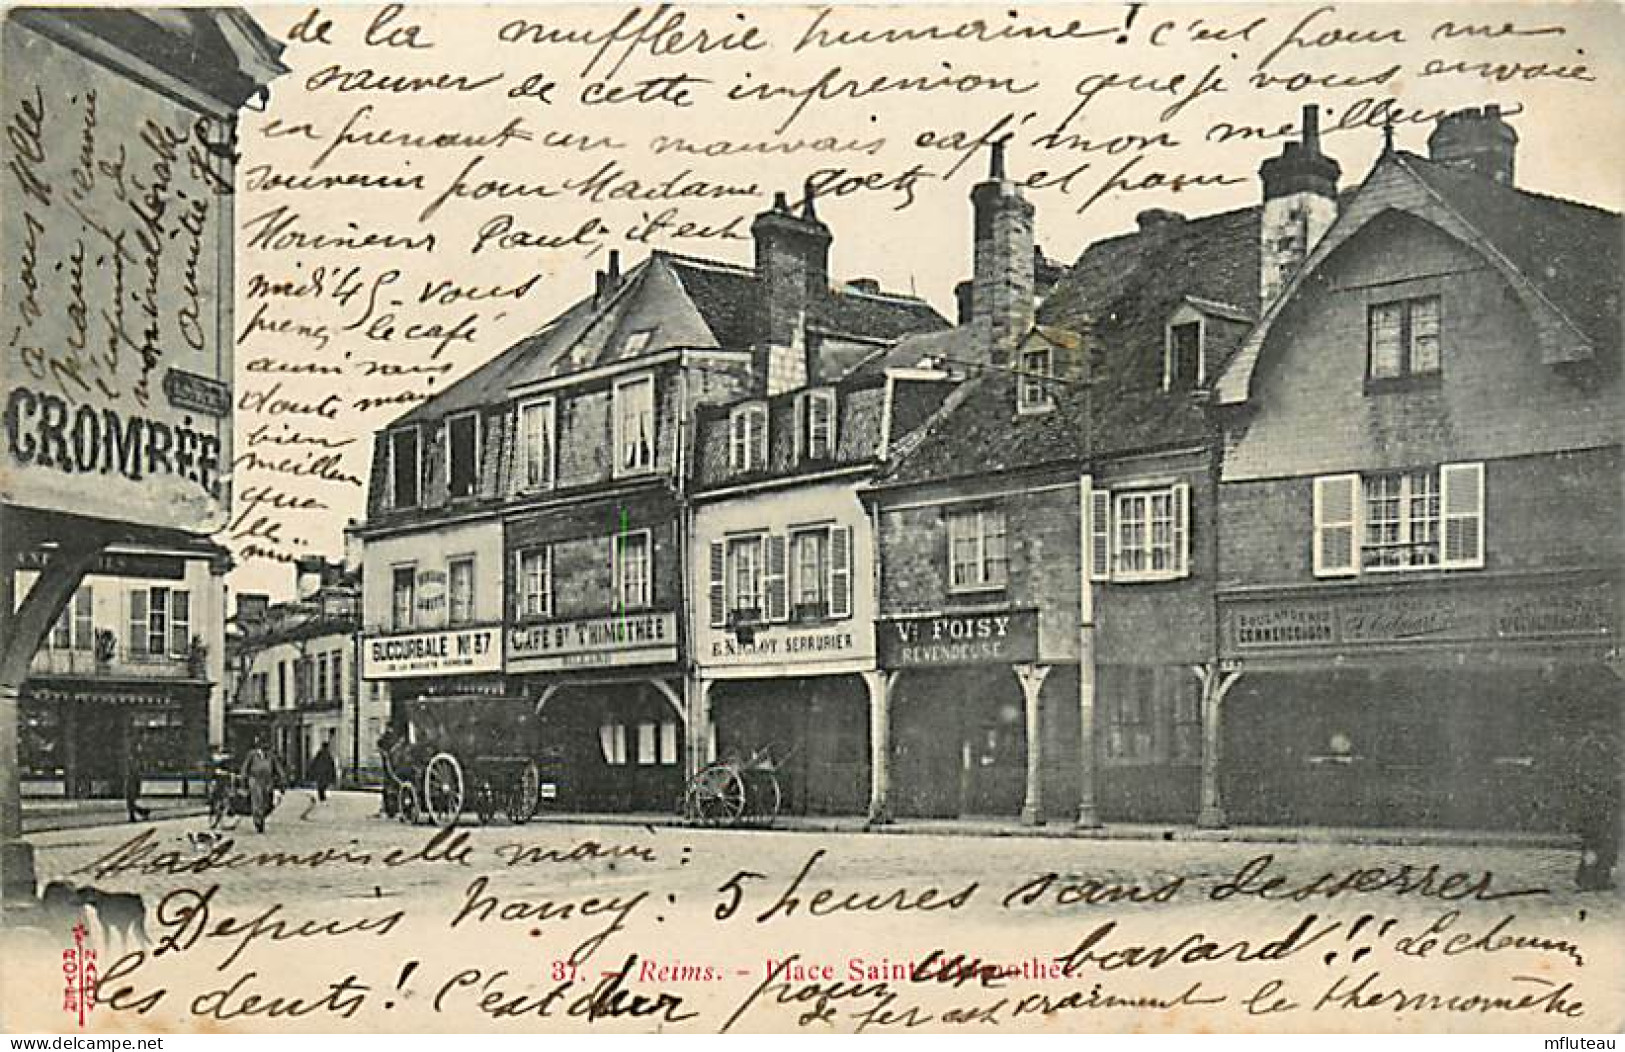 de la mufflerie humaine! c'est pour me
sauver de cette impression que je vous envoie
en prenant un mauvais café mon meilleur
souvenir pour Madame Goetz et pour
Monsieur Paul; il est
midi 45 - vous
prenez le café
aussi sans
doute mais
bien
meilleur
que
le
mien
à vous Mlle
Marie j'envoie
l'expression de
mon inaltérable
amitié
CROMBÉE
SUCCURSALE No 37
CAFÉ St THIMOTHÉE
BILLARD
E. NIGLOT SERRURIER
Ve FOISY
REVENDEUSE
Mademoiselle Marie:
Depuis Nancy: 5 heures sans desserrer
les dents! C'est dur pour un bavard!! Le chemin
de fer est vraiment le thermomètre
37. - Reims. - Place Saint-Thimothée.
ROYER
NANCY
mfluteau